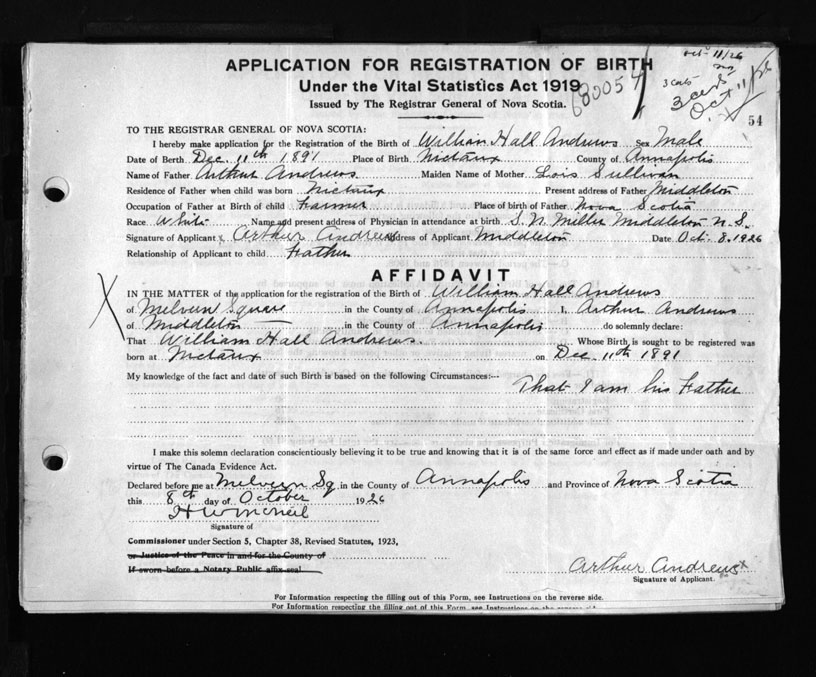 Oct 11/26
APPLICATION FOR REGISTRATION OF BIRTH
Under the Vital Statistics Act 1919
680054
3 certs
3 certs
Oct 11/26
Issued by The Registrar General of Nova Scotia.
54
TO THE REGISTRAR GENERAL OF NOVA SCOTIA:
I hereby make application for the Registration of the Birth of William Hall Andrews Sex Male
Date of Berth Dec. 11th 1891 Place of Birth Nictaux County of Annapolis
Name of Father Arthur Andrews Maiden Name of Mother Lois Sullivan
Residence of Father when child was born Nictaux Present address of Father Middleton
Occupation of Father at Birth of child Farmer Place of birth of Father Nova Scotia
Race White Name and present address of Physician in attendance at birth S. N. Miller Middleton N.S.
Signature of Applicant x Arthur Andrews Address of Applicant Middleton Date Oct. 8. 1926
Relationship of Applicant to child Father
AFFIDAVIT
X
IN THE MATTER of the application for the registration of the Birth of William Hall Andrews
of Melvern Square in the County of Annapolis I, Arthur Andrews
of Middleton in the County of Annapolis do solemnly declare:
That William Hall Andrews. Whose Birth is sought to be registered was
born at Nictaux on Dec. 11th 1891
My knowledge of the fact and date of such Birth is based on the following Circumstances:--
That I am his Father
I make this solemn declaration conscientiously believing it to be true and knowing that it is of the same force and effect as if made under oath and by
virtue of The Canada Evidence Act.
Declared before me at Melvern Sq in the County of Annapolis and Province of Nova Scotia
this 8th day of October 1926
H W McNeil
Signature of
Commissioner under Section 5, Chapter 38, Revised Statutes, 1923,
or Justice of the Peace in and for the County of
If sworn before a Notary Public affix seal
Arthur Andrews x
Signature of Applicant.
For Information respecting the filling out of this Form, see Instructions on the reverse side.
For Information respecting the filling out of this Form, see Instructions on the reverse side.